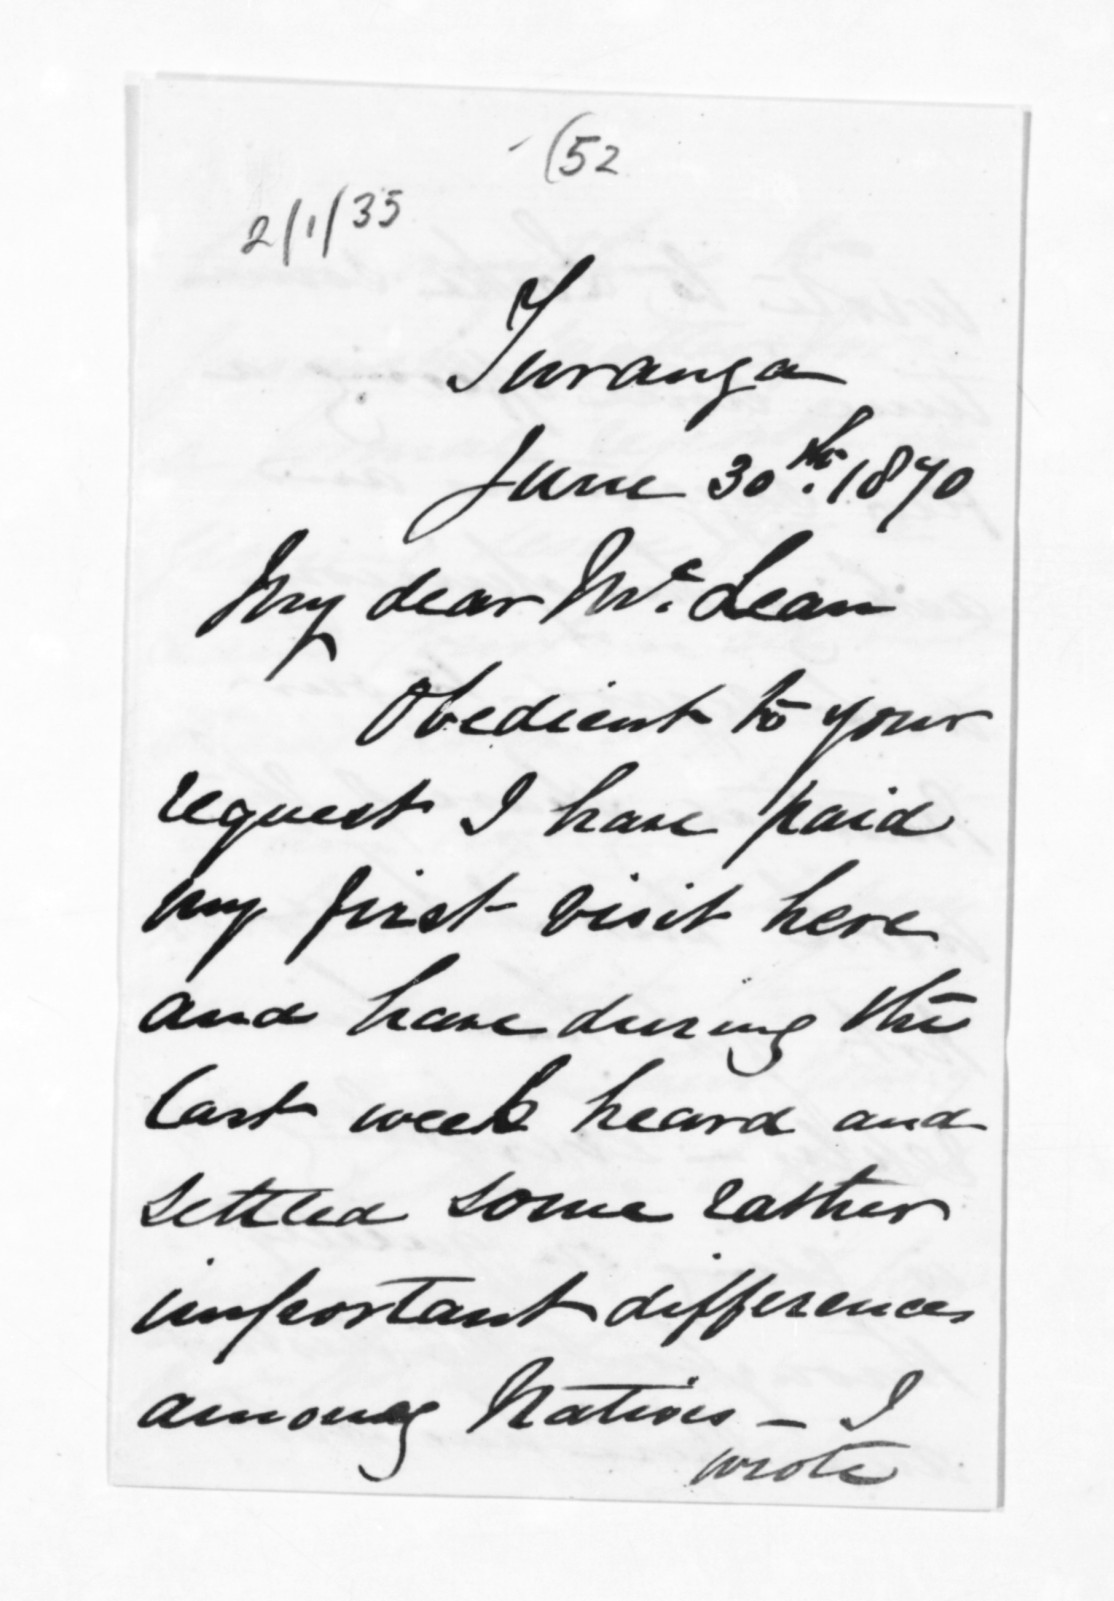 (52
2/1/35
Turanga
June 30th. 1870
My dear Mc. Lean
Obedient to your
request I have paid
my first visit here
and have during the
last week heard and
settled some rather
important differences
among Natives - I
wrote